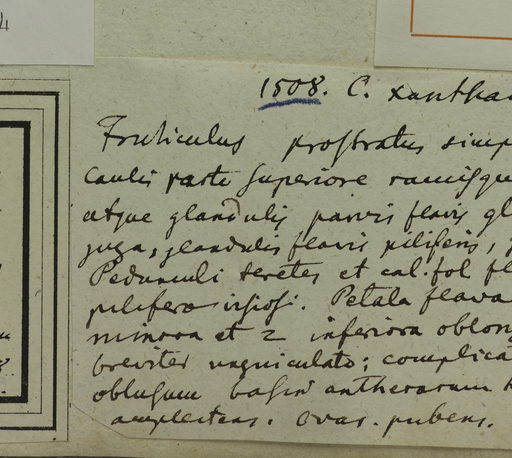 4
1508. C. xantha
Fruticulus prostratus simp
caulis parte superiore ramisqu
atque glandulis parvis flavis gl
juga, glandulis flavis piliferis,
Pedunculi teretes et cal. fol fl
piliferæ Petala flava
minora et 2 inferiora oblong
breviter unguiculata; complica
obtusum basin antherarum
amplectens. Ovar. pubens.
8.